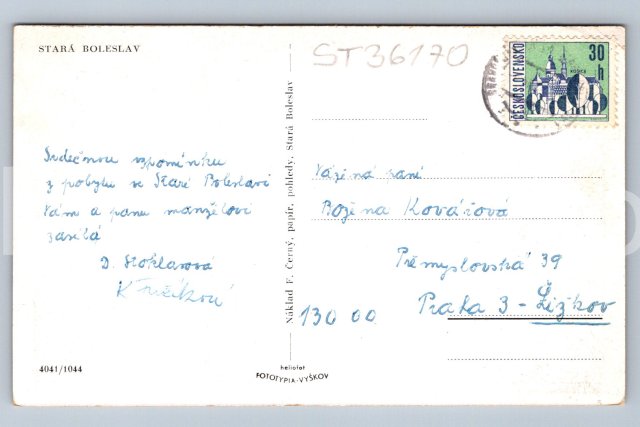 STARÁ BOLESLAV
ST36170
ČESKOSLOVENSKO
30 h
Srdečnou vzpomínku
z pobytu ve Staré Boleslavi
Vám a panu manželovi
zasílá
J. Stoklasová
K
4041/1044
Náklad F. Černý, papír, pohledy, Stará Boleslav
heliofot
FOTOTYPIA-VYŠKOV
Vážená paní
Božena Kovářová
Přemyslovská 39
130 00 Praha 3 - Žižkov